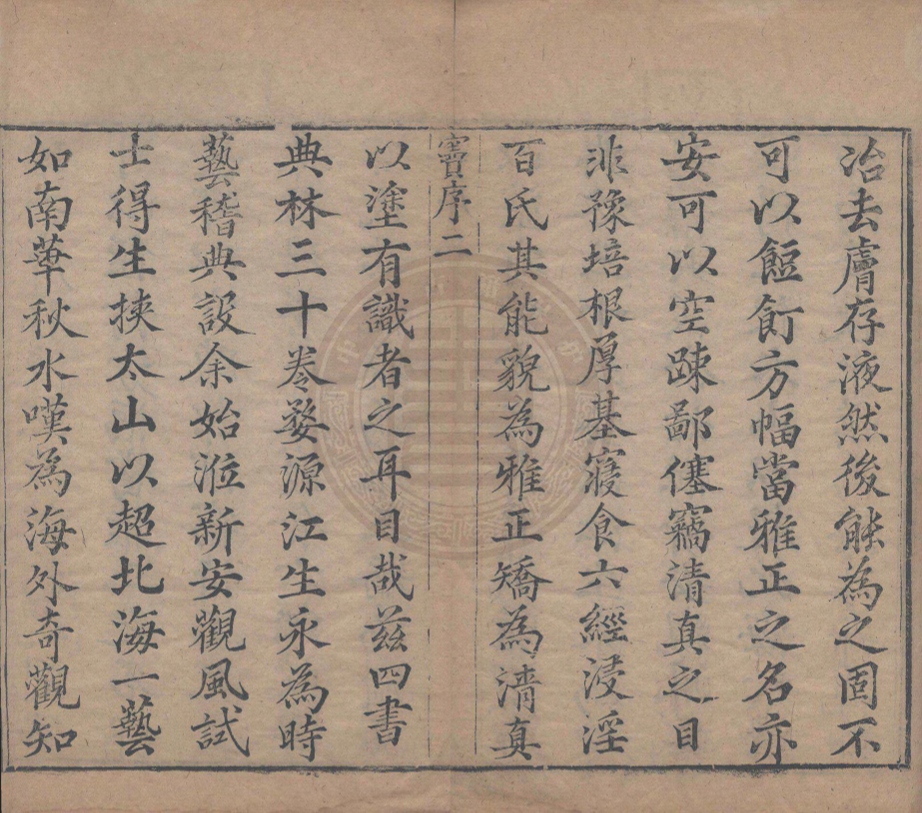 冶去膚存液然後能為之固不
可以餖飣方幅當雅正之名亦
安可以空踈鄙僿竊清真之目
非豫培根厚基寢食六經浸淫
百氏其能貌為雅正矯為清真
竇序二
以塗有識者之耳目哉茲四書
典林三十卷婺源江生永為時
藝稽典設余始涖新安觀風試
士得生挾太山以超北海一藝
如南華秋水嘆為海外奇觀知